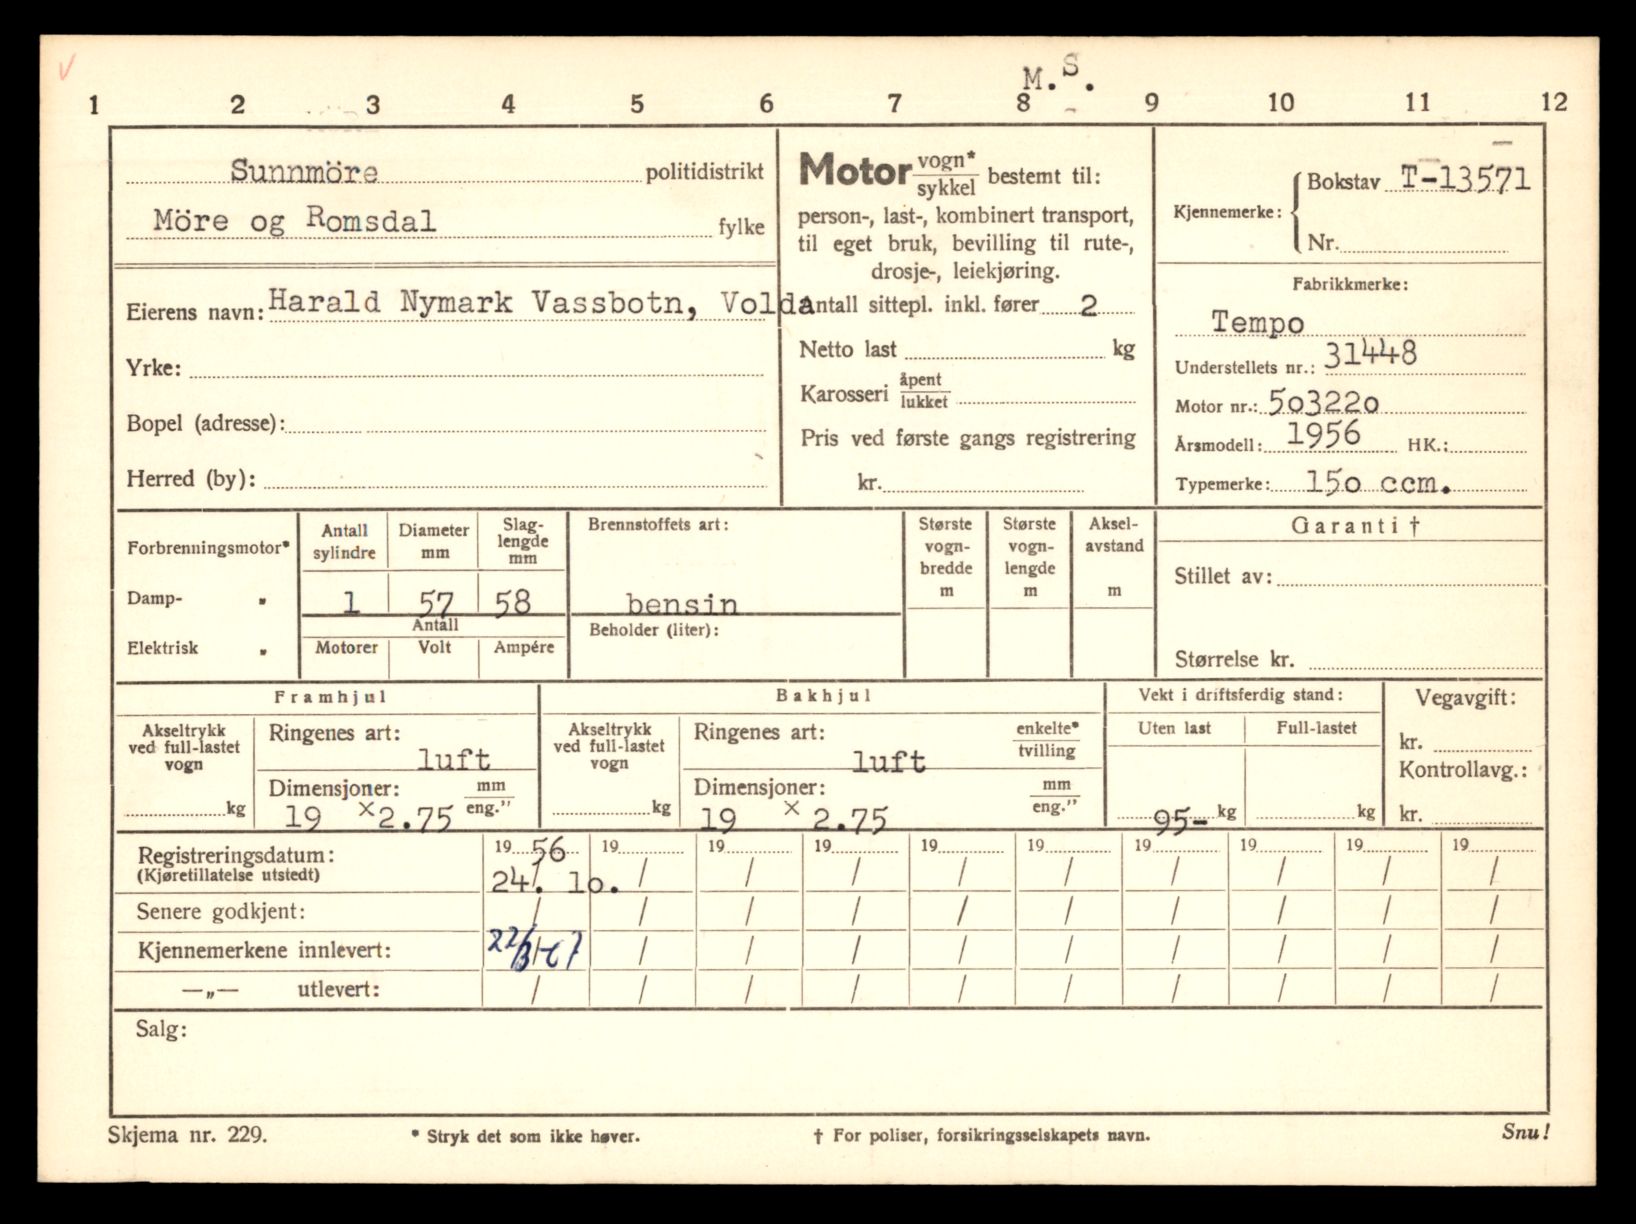 M.S.
1 2 3 4 5 6 7 8 9 10 11 12
Sunnmöre politidistrikt
Möre og Romsdal fylke
Eierens navn: Harald Nymark Vassbotn, Volda
Yrke:
Bopel (adresse):
Herred (by):
Motor vogn* sykkel bestemt til:
person-, last-, kombinert transport,
til eget bruk, bevilling til rute-,
drosje-, leiekjøring.
Antall sittepl. inkl. fører 2
Netto last kg
Karosseri åpent lukket
Pris ved første gangs registrering
kr.
Kjennemerke: Bokstav T-13571
Nr.
Fabrikkmerke:
Tempo
Understellets nr.: 31448
Motor nr.: 503220
Årsmodell: 1956 HK.:
Typemerke: 150 ccm.
Forbrenningsmotor*
Damp- "
Elektrisk "
Antall sylindre
Diameter mm
Slag-lengde mm
1 57 58
Antall
Motorer Volt Ampére
Brennstoffets art:
bensin
Beholder (liter):
Største vogn-bredde m
Største vogn-lengde m
Aksel-avstand m
Garanti †
Stillet av:
Størrelse kr.
Framhjul
Akseltrykk ved full-lastet vogn
kg
Ringenes art:
luft
Dimensjoner: mm eng."
19 x 2.75
Bakhjul
Akseltrykk ved full-lastet vogn
kg
Ringenes art: enkelte* tvilling
luft
Dimensjoner: mm eng."
19 x 2.75
Vekt i driftsferdig stand:
Uten last Full-lastet
95- kg kg
Vegavgift:
kr.
Kontrollavg.:
kr.
Registreringsdatum: 19 56 19 19 19 19 19 19 19 19 19
(Kjøretillatelse utstedt) 24. 10. / / / / / / / / /
Senere godkjent: / / / / / / / / / /
Kjennemerkene innlevert: / / / / / / / / /
—„— utlevert: / / / / / / / / / /
Salg:
Skjema nr. 229. * Stryk det som ikke høver. † For poliser, forsikringsselskapets navn. Snu!